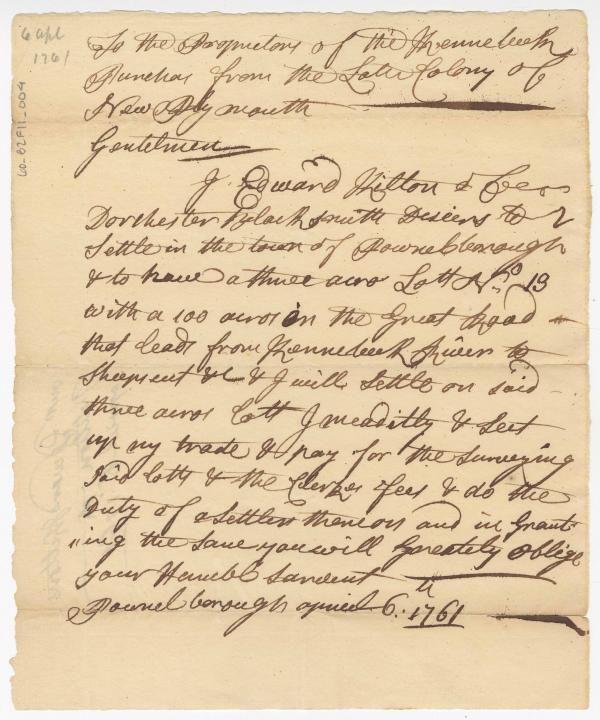 6 apl
1761
60-82F11_004
To the Proprietors of the Kennebeck
Purchas from the Late Colony of
New Plymouth
Gentelmen
I Edward Hilton
Dorchester Black smith Desiers to
Settle in the town of Pownelborough
& to have a three acro Lott No 13
with a 100 acros on the Great Road
that leads from Kennebeck River to
Sheepscut & I will Settle on said
three acros lott Imeaditly & Sett
up my trade & pay for the Surveying
said lotts & the Clerkes fees & do the
Duty of a Settler thereon and in Grant-
"ing the same you will Greately oblige
your Humbl Sarvent
Pownelborough apriel 6th. 1761